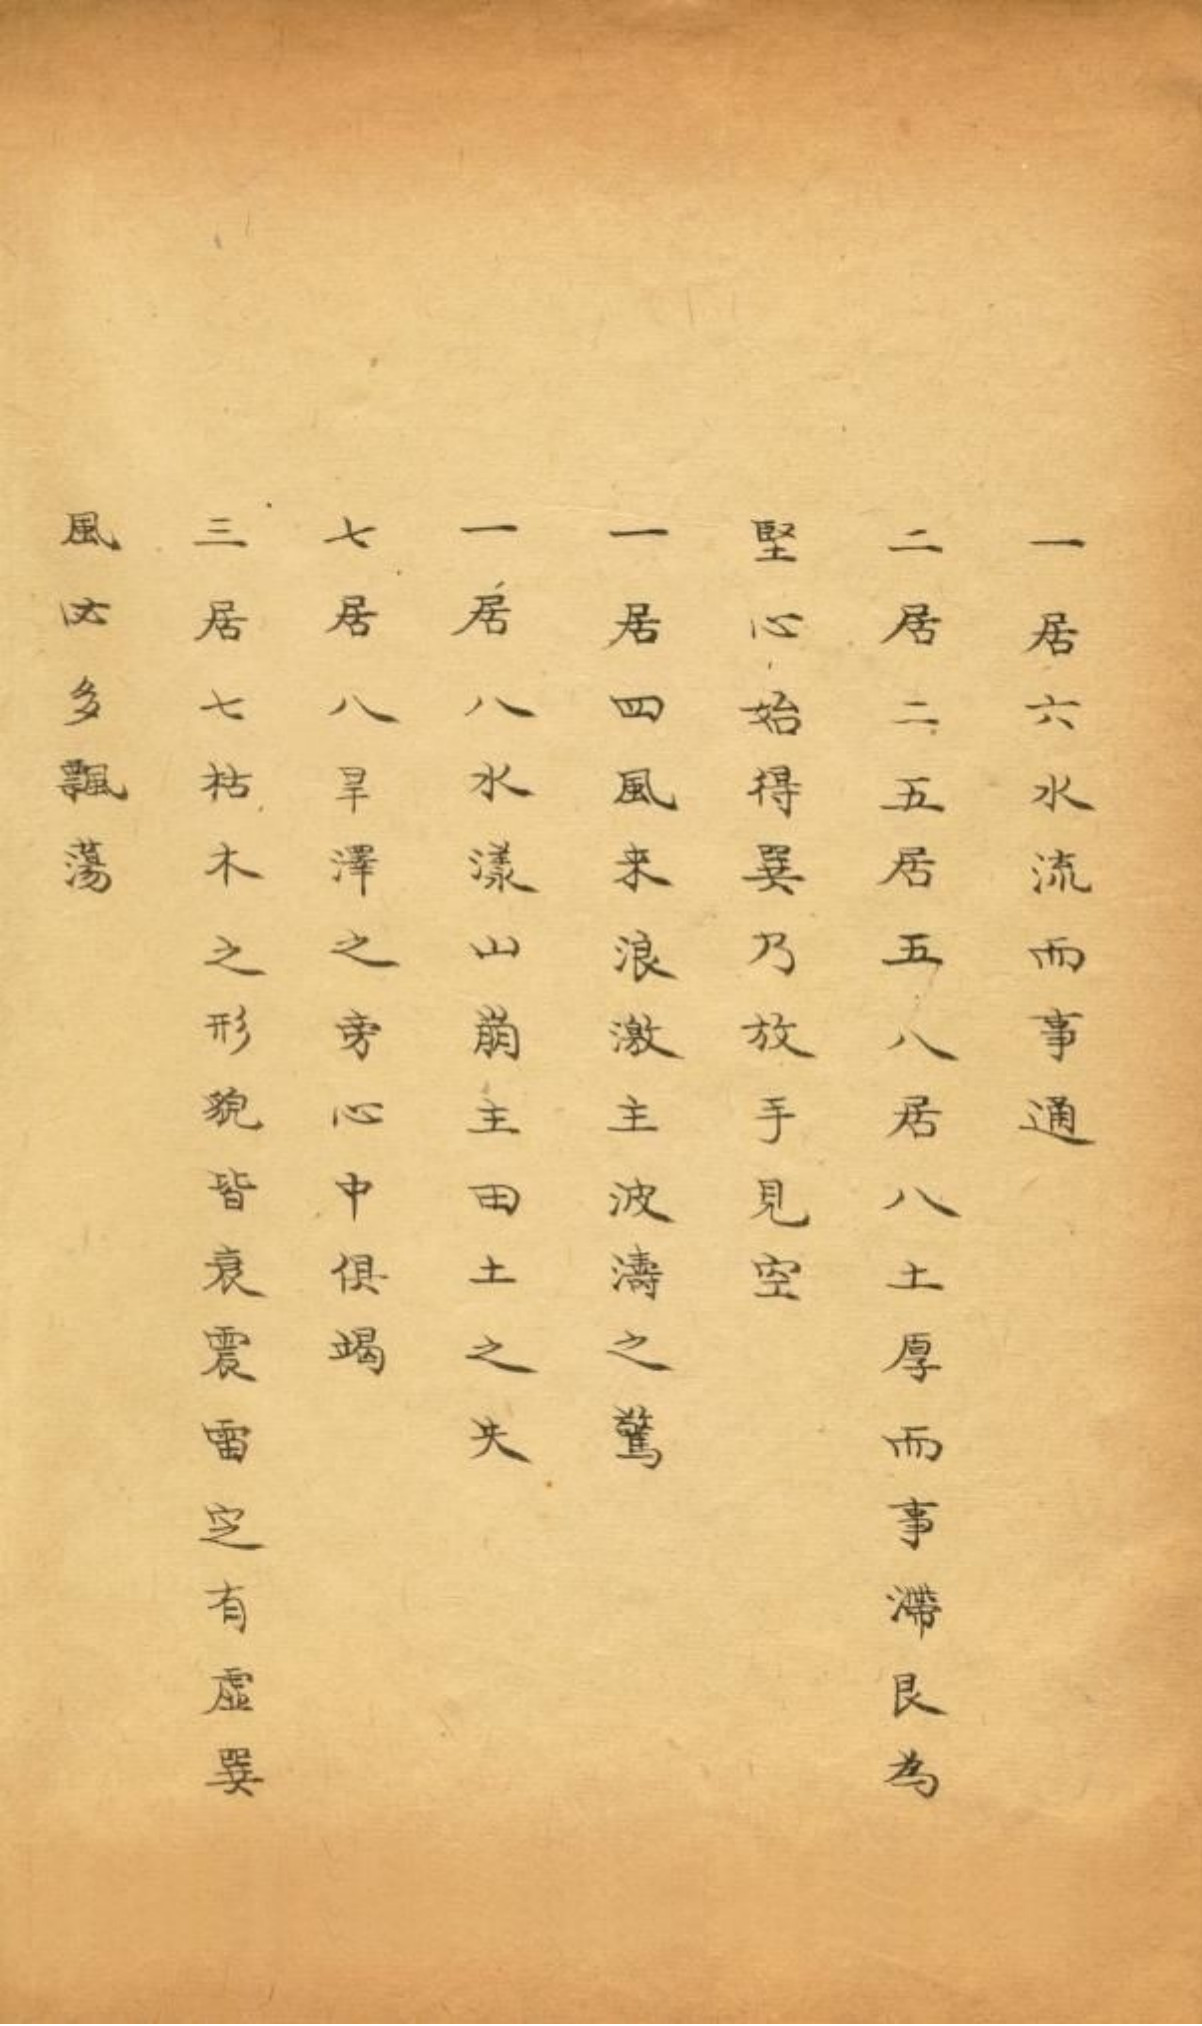 一居六水流而事通
二居二五居五八居八土厚而事滯艮為
堅心始得巽乃放手見空
一居四風来浪激主波濤之驚
一居八水漾山崩主田土之失
七居八旱澤之旁心中俱竭
三居七枯木之形貌皆衰震雷定有虛巽
風必多飄蕩